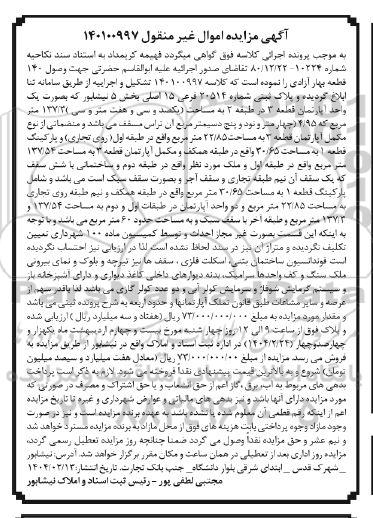 آگهی مزایده اموال غیر منقول ۱۴۰۱۰۰۹۹۷
به موجب پرونده اجرائی کلاسه فوق گواهی میگردد فهیمه کریمداد به استناد سند نکاحیه
شماره ۱۰۲۳۴ - ۸۰/۱۲/۲۲ تقاضای صدور اجرائیه علیه ابوالقاسم حضرتی جهت وصول ۱۴۰
قطعه بهار آزادی را نموده است که کلاسه ۱۴۰۱۰۰۹۹۷ تشکیل و اجراییه از طریق سامانه ثنا
ابلاغ گردیده و پلاک ثبتی شماره ۲۰۵۱۴ فرعی ۱۵ اصلی بخش ۵ نیشابور که بصورت یک
واحد آپارتمان قطعه ۳ در طبقه ۲ به مساحت (یکصد و سی و هفت متر و سی) ۱۳۷/۳ متر
مربع که ۴/۹۵ (چهار متر و نود و پنج دسیمتر مربع آن تراس مسقف می باشد و منضماتی از نوع
مکمل آپارتمان قطعه ۳ به مساحت ۲۲/۸۵ متر مربع واقع در طبقه اول (روی تجاری) و پارکینگ
قطعه ۱ به مساحت ۳۰/۶۵ واقع در طبقه همکف و مکمل آپارتمان قطعه ۳ به مساحت ۱۳۷/۵۴
متر مربع واقع در طبقه اول و ملک مورد نظر واقع در طبقه دوم و ساختمانی با شش سقف
که یک سقف آن نیم طبقه تجاری و سقف آخر و بصورت سقف سبک است می باشد و شامل
پارکینگ قطعه ۱ به مساحت ۳۰/۶۵ متر مربع واقع در طبقه همکف و نیم طبقه روی تجاری
به مساحت ۲۲/۸۵ متر مربع و دو واحد آپارتمان در طبقات اول و دوم به مساحت ۱۳۷/۵۴ و
۱۳۷/۳ متر مربع و طبقه آخر با سقف سبک و به مساحت حدود ۶۰ متر مربع می باشد و با توجه
به اینکه این قسمت بصورت غیر مجاز احداث و توسط کمیسیون ماده ۱۰۰ شهرداری تعیین
تکلیف نگردیده و متراژ آن نیز در سند لحاظ نشده است لذا در ارزیابی نیز احتساب نگردیده
است فونداسیون ساختمان بتنی اسکلت فلزی ، سقف ها تیرچه و بلوک و نمای بیرونی
ملک سنگ و کف واحدها سرامیک، بدنه دیوارهای داخلی کاغذ دیواری و دارای آشپزخانه باز
و سیستم گرمایش شوفاژ و سرمایش کولر آبی و دو عدد کولر گازی می باشد لذا باقدرسهم از
عرصه و سایر مشاعات طبق قانون تملک آپارتمانها و حدود اربعه به شرح پرونده ثبتی می باشد
و مقدار مورد مزایده به مبلغ ۷۳/۰۰۰/۰۰۰/۰۰۰ ریال (هفتاد و سه میلیارد ریال) ارزیابی شده
و پلاک فوق از ساعت ۹ الی ۱۲ روز چهارشنبه مورخ بیست و چهارم اردیبهشت ماه یکهزار و
چهارصدوچهار (۱۴۰۴/۲/۲۴) در اداره ثبت اسناد و املاک واقع در نیشابور از طریق مزایده به
فروش می رسد. مزایده از مبلغ ۷۳/۰۰۰/۰۰۰/۰۰۰ ریال (معادل هفت میلیارد و سیصد میلیون
تومان) شروع و به بالاترین قیمت پیشنهادی نقدا فروخته می شود. لازم به ذکر است پرداخت
بدهی های مربوط به آب، برق، گاز اعم از حق انشعاب و یا حق اشتراک و مصرف در صورتی که
مورد مزایده دارای آنها باشد و نیز بدهی های مالیاتی و عوارض شهرداری و غیره تا تاریخ مزایده
اعم از اینکه رقم قطعی آن معلوم شده یا نشده باشد به عهده برنده مزایده است و نیز در صورت
وجود مازاد وجوه پرداختی بابت هزینه های فوق از محل مازاد به برنده مزایده مسترد خواهد شد
و نیم عشر و حق مزایده نقدا وصول می گردد ضمنا چنانچه روز مزایده تعطیل رسمی گردد،
مزایده روز اداری بعد از تعطیلی در همان ساعت و مکان مقرر برگزار خواهد شد. آدرس: نیشابور
_ شهرک قدس _ ابتدای شرقی بلوار دانشگاه_ جنب بانک تجارت. تاریخ انتشار: ۱۴۰۴/۰۲/۱۳
مجتبی لطفی پور - رئیس ثبت اسناد و املاک نیشابور